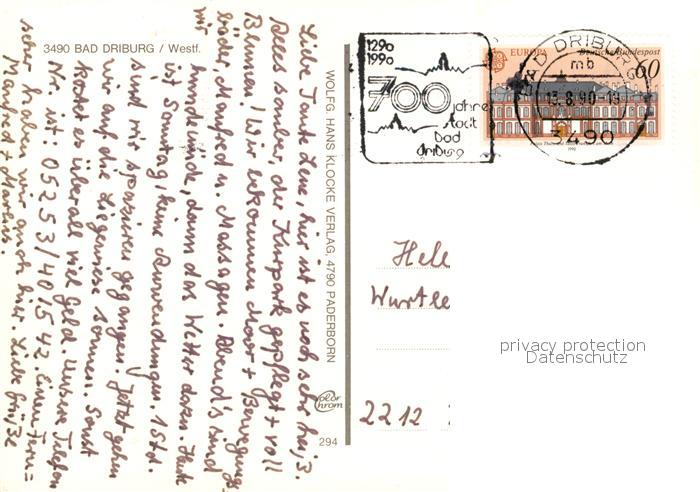 3490 BAD DRIBURG / Westf.
Liebe Tante Lene, hier ist es noch sehr heiß.
Alles sauber, der Kurpark gepflegt + voll
Blumen! Wir bekommen Moor + Bewegungs=
bäder, Manfred n. Massagen. Abend's sind
wir
hundemüde, dann das Wetter daran. Heute
ist Sonntag, keine Anwendungen. 1 Std.
sind wir spazieren gegangen. Jetzt gehen
wir auf die Liegewiese sonnen. Sonst
kostet es überall viel Geld. Unsere Telefon
Nr. ist: 05253/401542. Einen Fern=
seher haben wir auch hier. Liebe Grüße
Manfred +
WOLFG. HANS KLOCKE VERLAG, 4790 PADERBORN
color
chrom
294
1290
1990
700 jahre
stadt
bad
driburg
EUROPA Deutsche Bundespost
60
1990
BAD DRIBURG
mb
13.8.90-19
3490
Hele
Wurtle
2212
privacy protection
Datenschutz